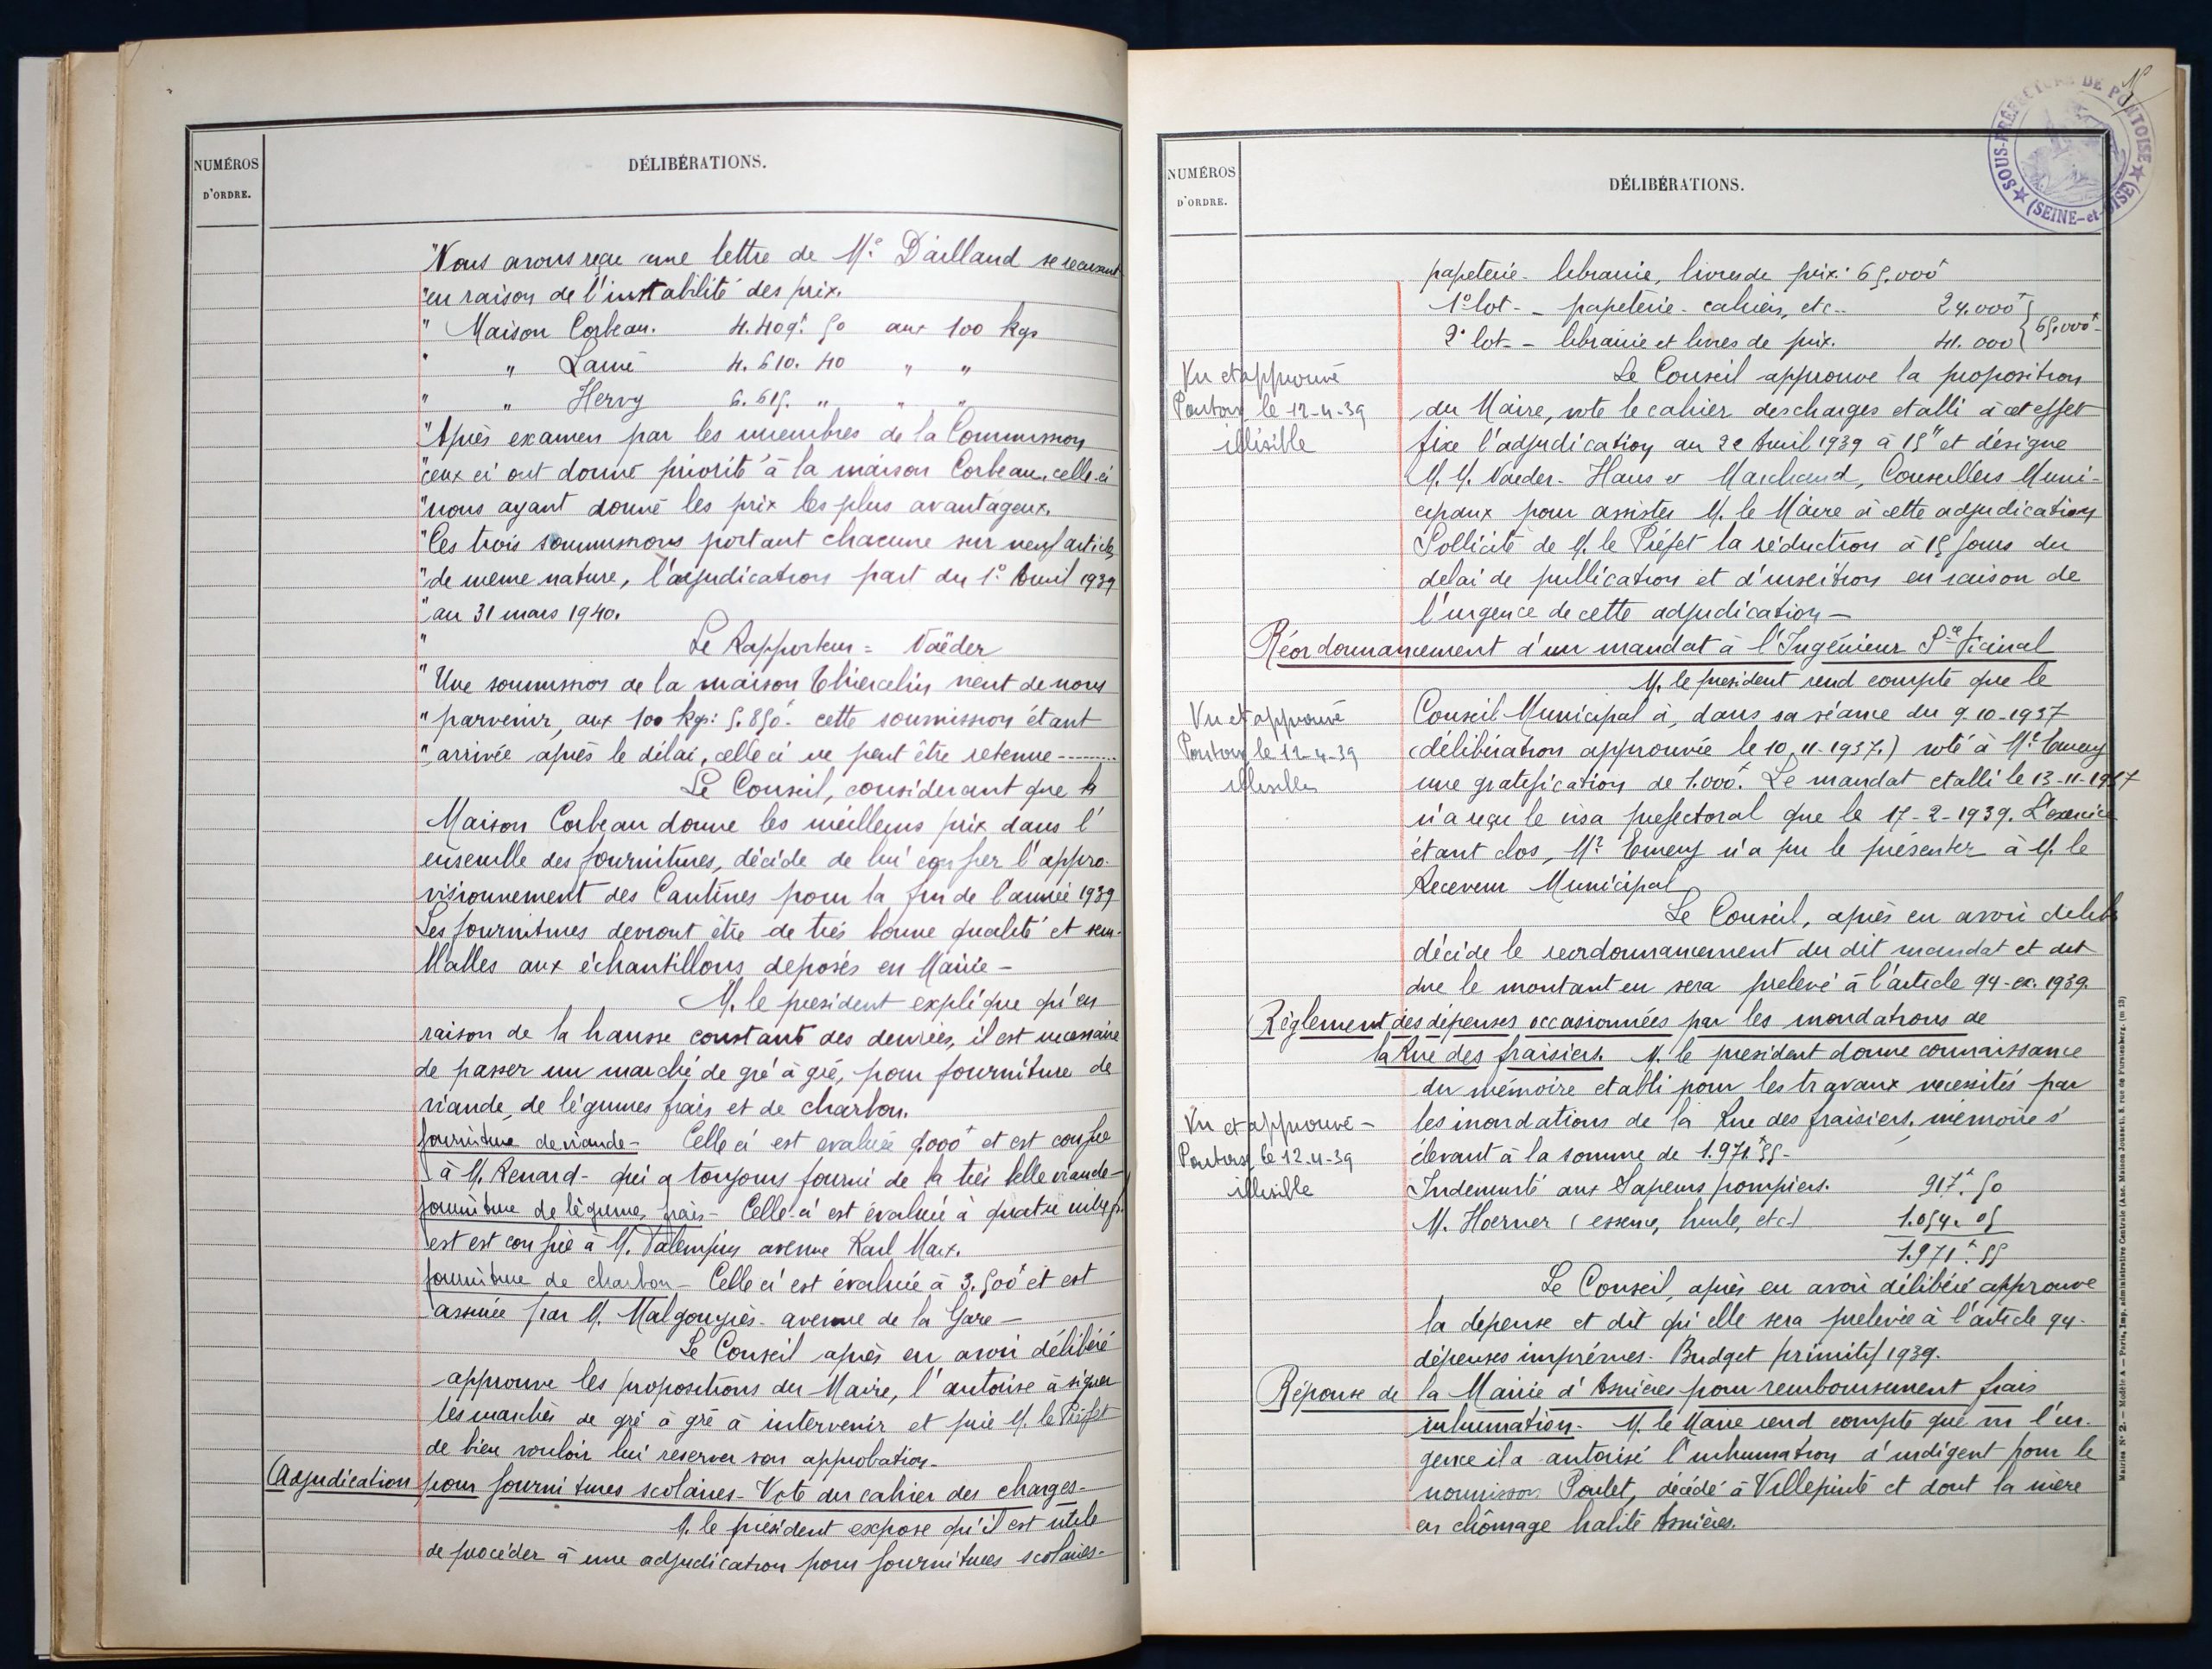 NUMÉROS
D'ORDRE.
DÉLIBÉRATIONS.
"Nous avons reçu une lettre de Mr Dailland se recusant
"en raison de l'instabilité des prix.
" Maison Corbeau. 4.409f 50 aux 100 kgs
" " Lamé 4.610. 40 " "
" " Hervy 6.615. " " "
"Après examen par les membres de la Commission
"ceux ci ont donné priorité à la maison Corbeau, celle-ci
"nous ayant donné les prix les plus avantageux.
"Ces trois soumissions portant chacune sur neuf articles
"de meme nature, l'adjudication part du 1° Avril 1939
"au 31 mars 1940.
" Le Rapporteur = Vaëder
"Une soumission de la maison Thiercelin vient de nous
"parvenir, aux 100 kgs: 5.850f cette soumission étant
"arrivée après le délai, celle ci ne peut être retenue--------
Le Conseil, considerant que la
Maison Corbeau donne les meilleurs prix dans l'
ensemble des fournitures, décide de lui confier l'appro-
visionnement des Cantines pour la fin de l'année 1939
Les fournitures devront être de très bonne qualité et sem-
blables aux échantillons deposés en Mairie -
M. le president explique qu'en
raison de la hausse constante des denrées, il est necessaire
de passer un marché de gré à gré, pour fourniture de
viande, de légumes frais et de charbon.
fourniture de viande - Celle ci est evaluée 9.000f et est confiée
à M. Renard - qui a toujours fourni de la très belle viande -
fourniture de légumes frais - Celle-ci est évaluée à quatre mille f.
est est confiée à M. avenue Karl Marx.
fourniture de charbon - Celle ci est évaluée à 3.500f et est
assurée par M. Malgouyrès - avenue de la Gare -
Le Conseil après en avoir délibéré
approuve les propositions du Maire, l'autorise à signer
les marchés de gré à gré à intervenir et prie M. le Préfet
de bien vouloir lui reserver son approbation -
Adjudication pour fournitures scolaires - Vote du cahier des charges -
M. le président expose qu'il est utile
de procéder à une adjudication pour fournitures scolaires -
NUMÉROS
D'ORDRE.
DÉLIBÉRATIONS.
SOUS-PRÉFECTURE DE PONTOISE
(SEINE-et-OISE)
papeterie - librairie, livres de prix: 65.000f
1° lot - - papeterie - cahiers, etc - 24.000f
65.000f
2° lot - - librairie et livres de prix. 41.000
Le Conseil approuve la proposition
Vu et approuvé
Pontoise le 12-4-39
illisible
du Maire, vote le cahier des charges etabli à cet effet
fixe l'adjudication au 2e Avril 1939 à 15h et désigne
M.M. Vaeder - Haus et Marchand, Conseillers Muni-
cipaux pour assister M. le Maire à cette adjudication
Sollicite de M. le Préfet la réduction à 15 jours du
delai de publication et d'insertion en raison de
l'urgence de cette adjudication -
Réordonnancement d'un mandat à l'Ingénieur Sce Vicinal
M. le president rend compte que le
Vu et approuvé
Pontoise le 12-4-39
illisible
Conseil Municipal à, dans sa séance du 9-10-1937
(délibération approuvée le 10-11-1937.) voté à Mr Emery
une gratification de 1.000f. Le mandat etabli le 13-11-1937
n'a reçu le visa prefectoral que le 17-2-1939. L'exercice
étant clos, Mr Emery n'a pu le présenter à M. le
Receveur Municipal
Le Conseil, après en avoir delib
décide le reordonnancement du dit mandat et dit
que le montant en sera prelevé à l'article 94 - ex. 1939.
Règlement des dépenses occasionnées par les inondations de
la Rue des fraisiers. M. le president donne connaissance
du mémoire etabli pour les travaux necessités par
Vu et approuvé -
Pontoise le 12-4-39
illisible
les inondations de la Rue des fraisiers. mémoire s'
élevant à la somme de 1.971f 55 -
Indemnité aux Sapeurs pompiers. 917f 50
M. Hoerner (essence, huile, etc.) 1.054. 05
1.971f 55
Le Conseil, après en avoir délibéré approuve
la dépense et dit qu'elle sera prelevée à l'article 94 -
dépenses imprévues - Budget primitif 1939.
Réponse de la Mairie d'Asnières pour remboursement frais
inhumation - M. le Maire rend compte que vu l'ur-
gence il a autorisé l'inhumation d'indigent pour le
nourrisson Poulet, décédé à Villepinte et dont la mère
en chômage habite Asnières.
Mairies N° 2. — Modèle A — Paris, Imp. administrative Centrale (Anc. Maison Jousset), 8, rue de Furstenberg. (m 13)